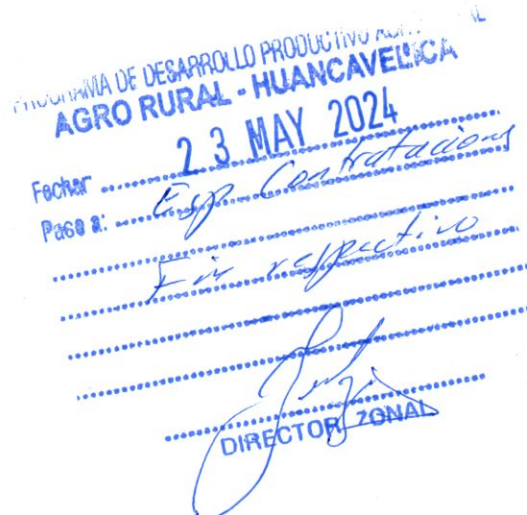 PROGRAMA DE DESARROLLO PRODUCTIVO
AGRO RURAL - HUANCAVELICA
23 MAY 2024
Fecha:
Pase a: Esp Contrataciones
Fin respectivo
DIRECTOR ZONAL